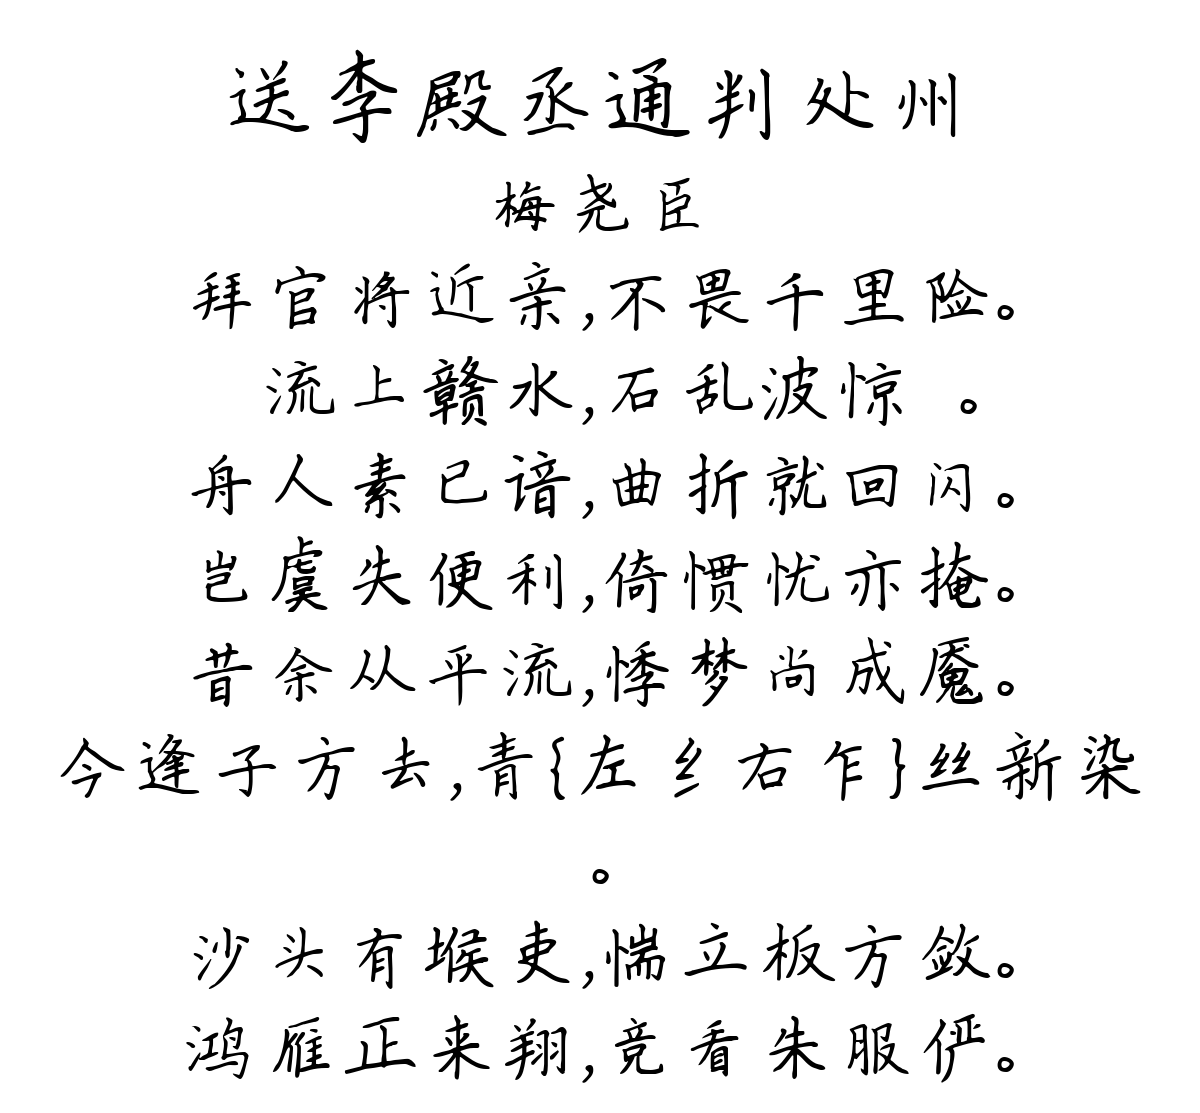 送李殿丞通判处州
梅尧臣
拜官将近亲,不畏千里险。
流上赣水,石乱波惊 。
舟人素已谙,曲折就回闪。
岂虞失便利,倚惯忧亦掩。
昔余从平流,悸梦尚成魇。
今逢子方去,青{左纟右乍}丝新染
。
沙头有堠吏,惴立板方敛。
鸿雁正来翔,竞看朱服俨。